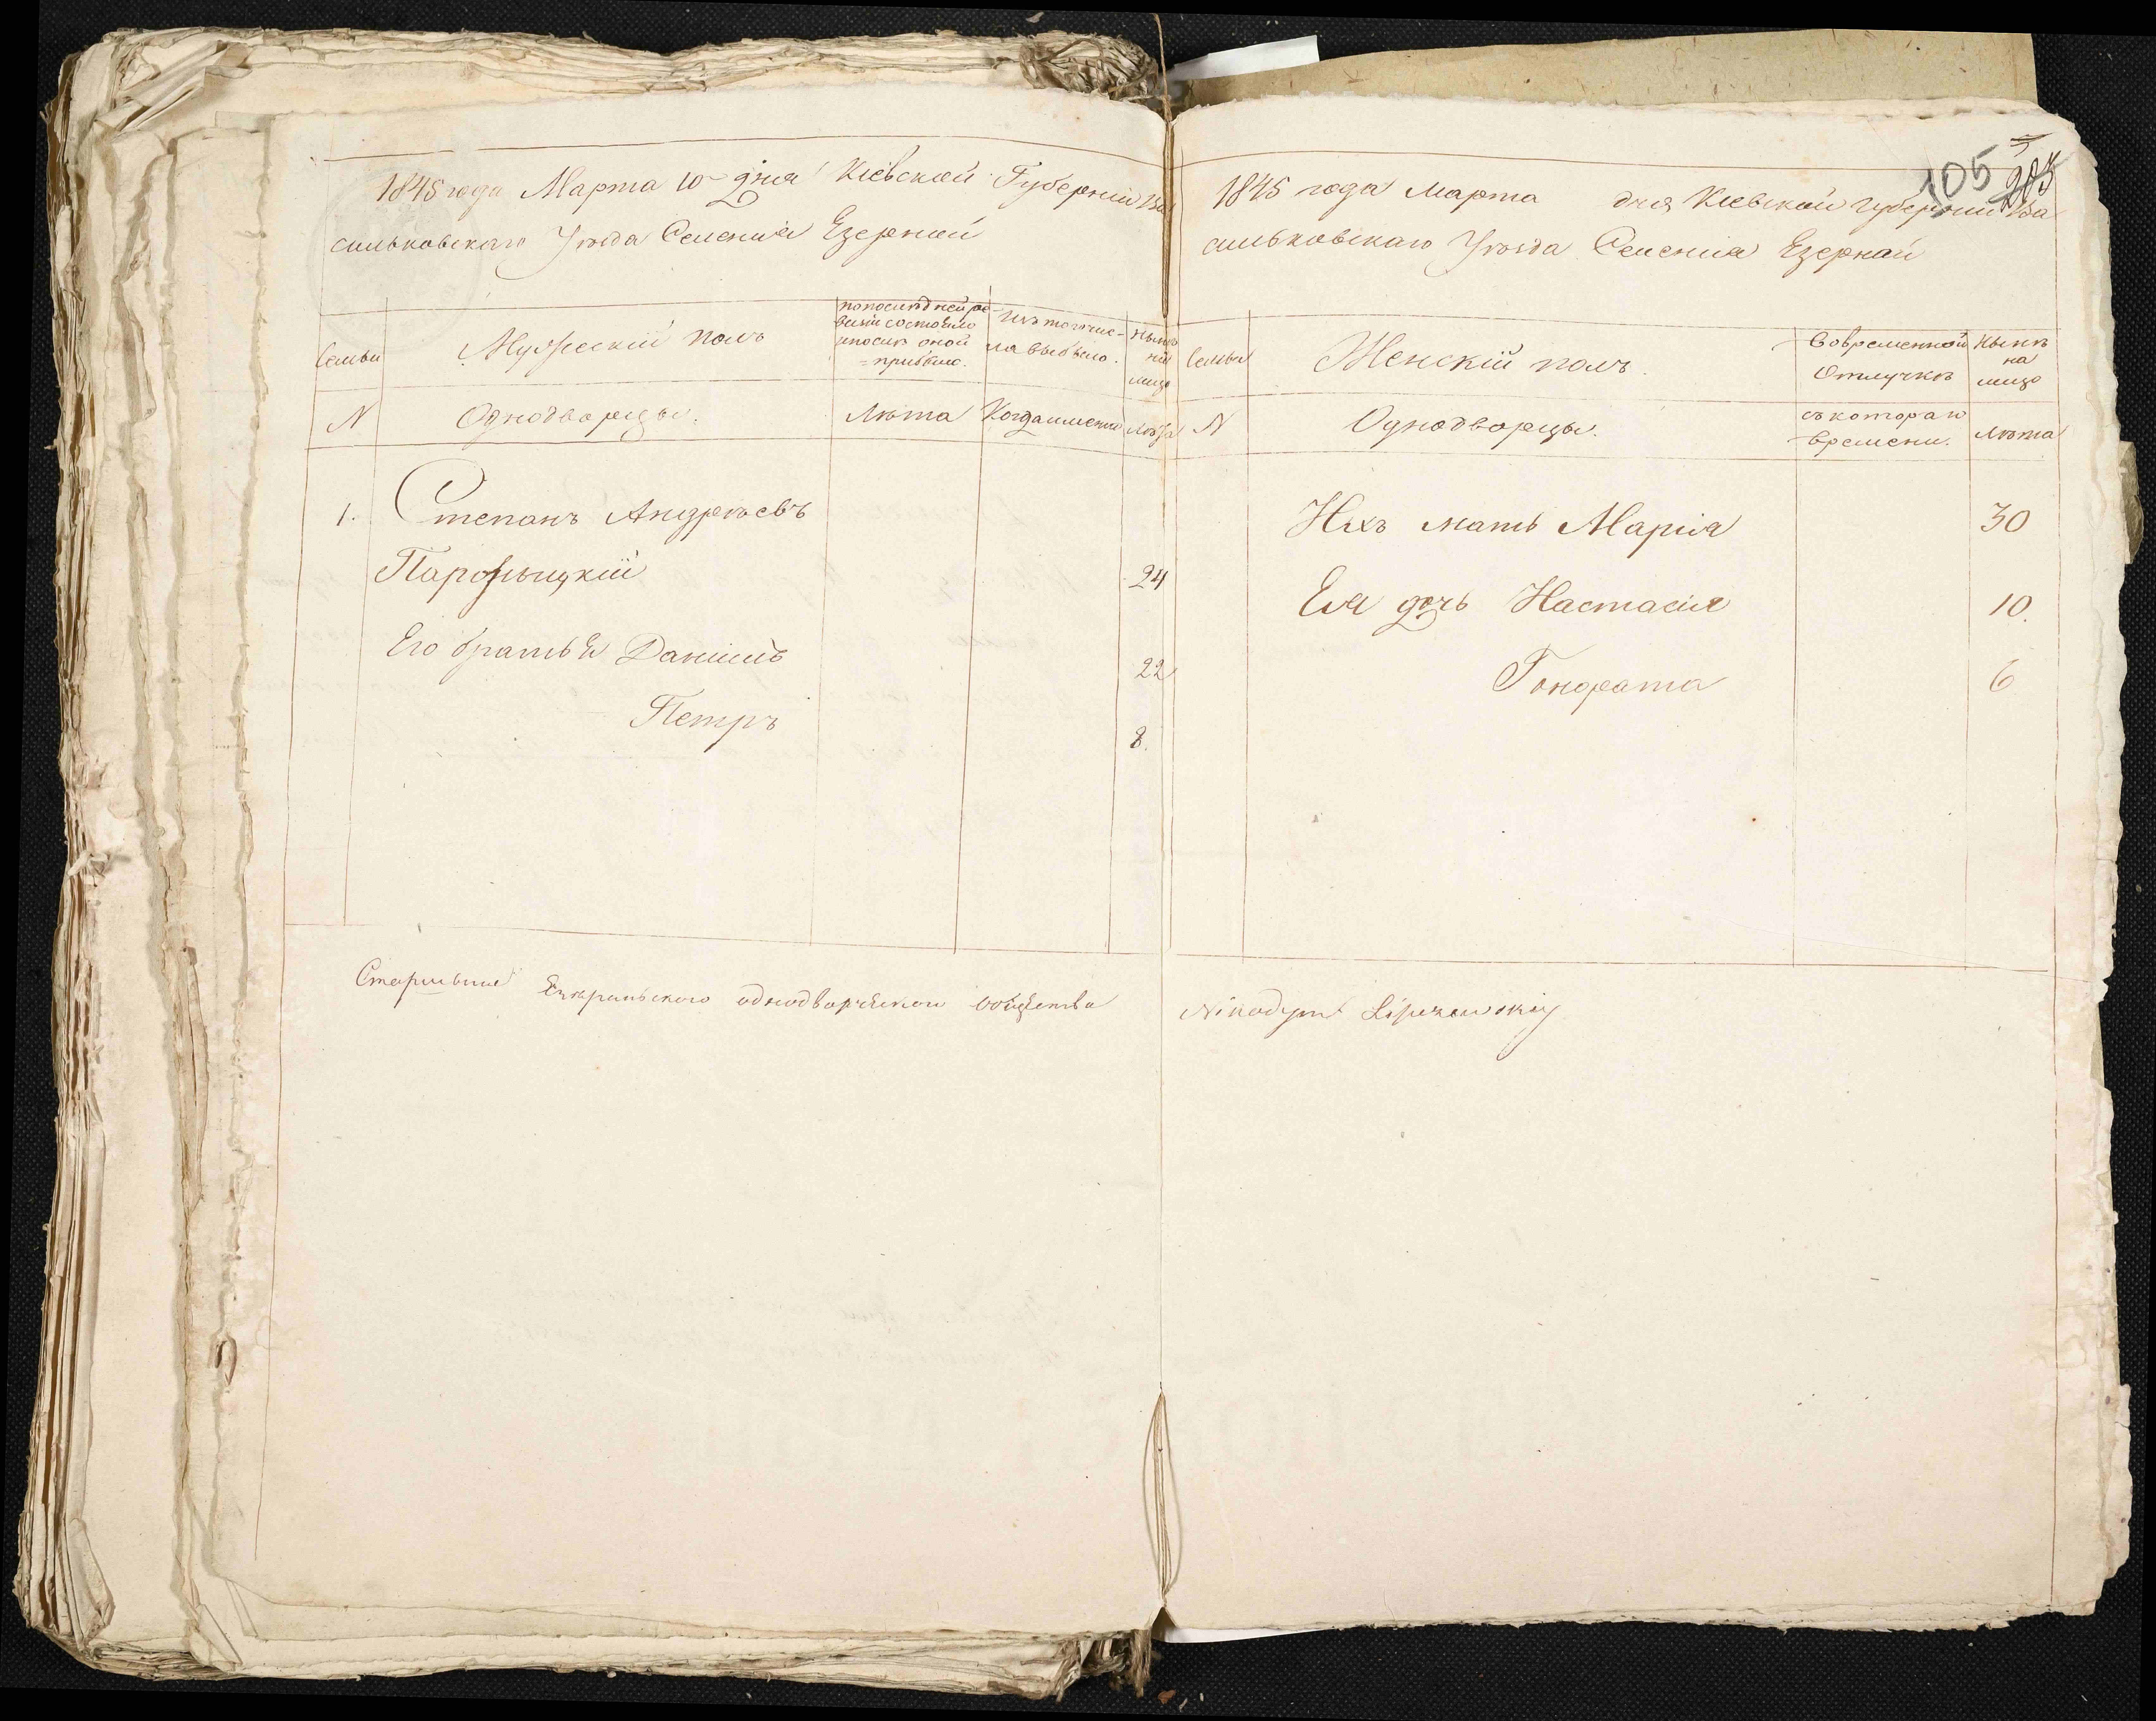 1845 года Марта 10 дня Кіевской Губерніи Ва
сильковскаго Уѣзда Селенія Езерной
Семьи
Мужескій полъ
по послѣдней ре-
визіи состояло
и послѣ оной
прибыло.
Изъ того чис-
ла выбыло.
Нынѣ
на
лицо
N
Однодворцы.
Лѣта
Когда именно
Лѣта
1. Степанъ Андреевъ
24
Его братья Даніилъ 22
Петръ 8.
Старшина однодворческаго общества
105
205
1845 года Марта дня Кіевской Губерніи Ва
сильковскаго Уѣзда Селенія Езерной
Семьи
Женскій полъ.
Вовременной
Отлучкѣ
Нынѣ
на
лицо
N
Однодворцы.
съ котораго
времени.
Лѣта
Ихъ мать Марія 30
Ея дочь Настасія 10.
6
Nikodym